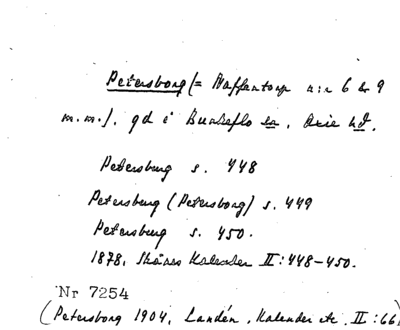 Petersborg (= Naffentorp n:r 6 o. 9
m.m.), gd i Bunkeflo sn, Oxie hd.
Petersburg s. 448
Petersburg (Petersborg) s. 449
Petersburg s. 450.
1878. Skånes Kalender II:448-450.
Nr 7254
(Petersborg 1904, Landén, Kalender etc. II:66)